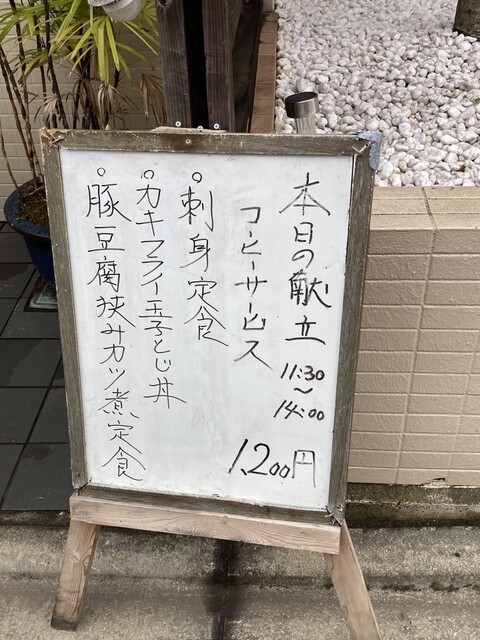 本日の献立
11:30
〜
14:00
コーヒーサービス
1,200円
○刺身定食
○カキフライ玉子とじ丼
○豚豆腐挟みカツ煮定食